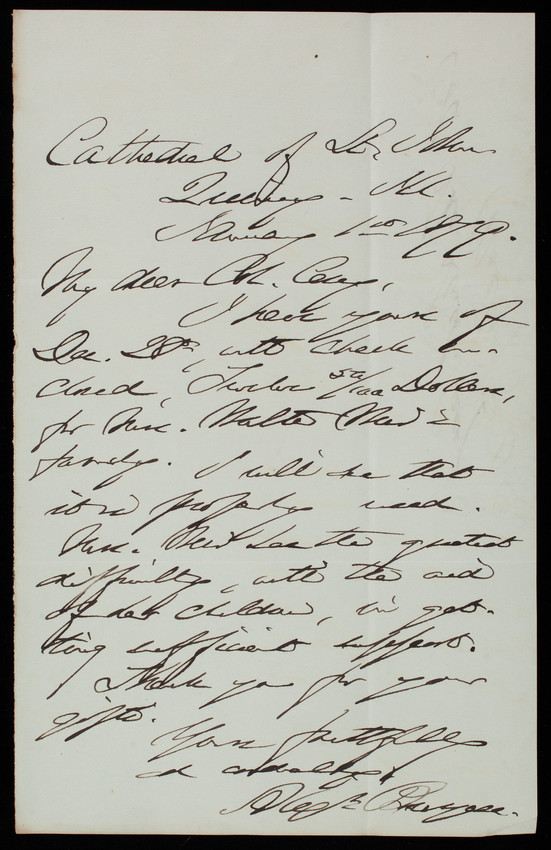 Cathedral of St. John
Quincy - Ill.
January 1st 1879.
My dear Col. Casey,
I have yours of
Dec. 28th, with check en-
closed, Twelve 50/100 Dollars,
for Mrs. Walter &
family. I will see that
it is properly used.
Mrs. has the greatest
difficulty, with the aid
of her children, in get-
ting sufficient support.
Thank you for your
gift.
Yours faithfully
& cordially,
Alex. Burgess.